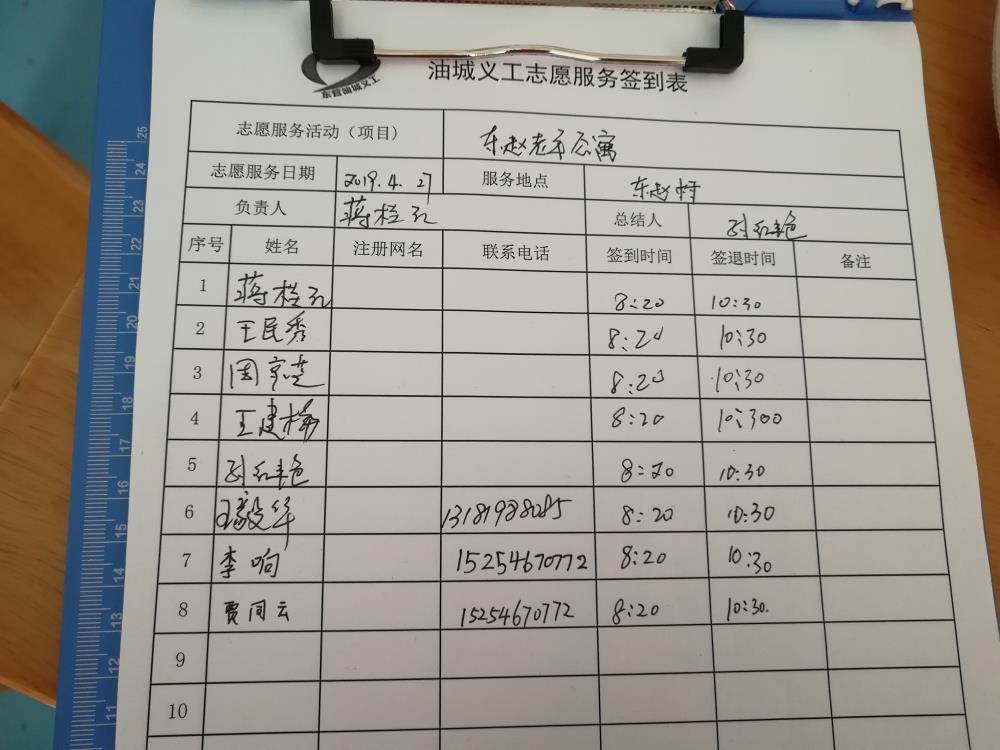 东营油城义工
油城义工志愿服务签到表
志愿服务活动（项目） 东赵老年公寓
志愿服务日期 2019.4.27 服务地点 东赵村
负责人 蒋栓孔 总结人 孙红艳
序号 姓名 注册网名 联系电话 签到时间 签退时间 备注
1 蒋栓孔 8:20 10:30
2 王民秀 8:20 10:30
3 8:20 10:30
4 王建梅 8:20 10:300
5 孙红艳 8:20 10:30
6 8:20 10:30
7 李响 15254670772 8:20 10:30
8 贾同云 15254670772 8:20 10:30.
9
10
25
24
23
22
21
20
19
18
17
16
15
14
13
12
11